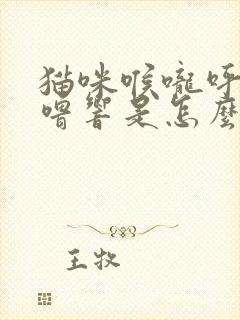 猫咪喉嚨呼
嚕響是怎麼
王牧